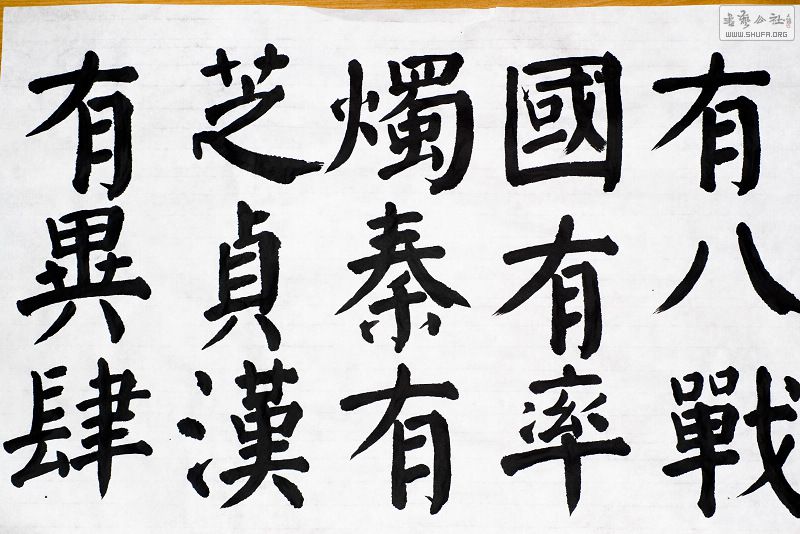 有八戰
國有率
燭秦有
芝貞漢
有異肆
书藝公社
WWW.SHUFA.ORG